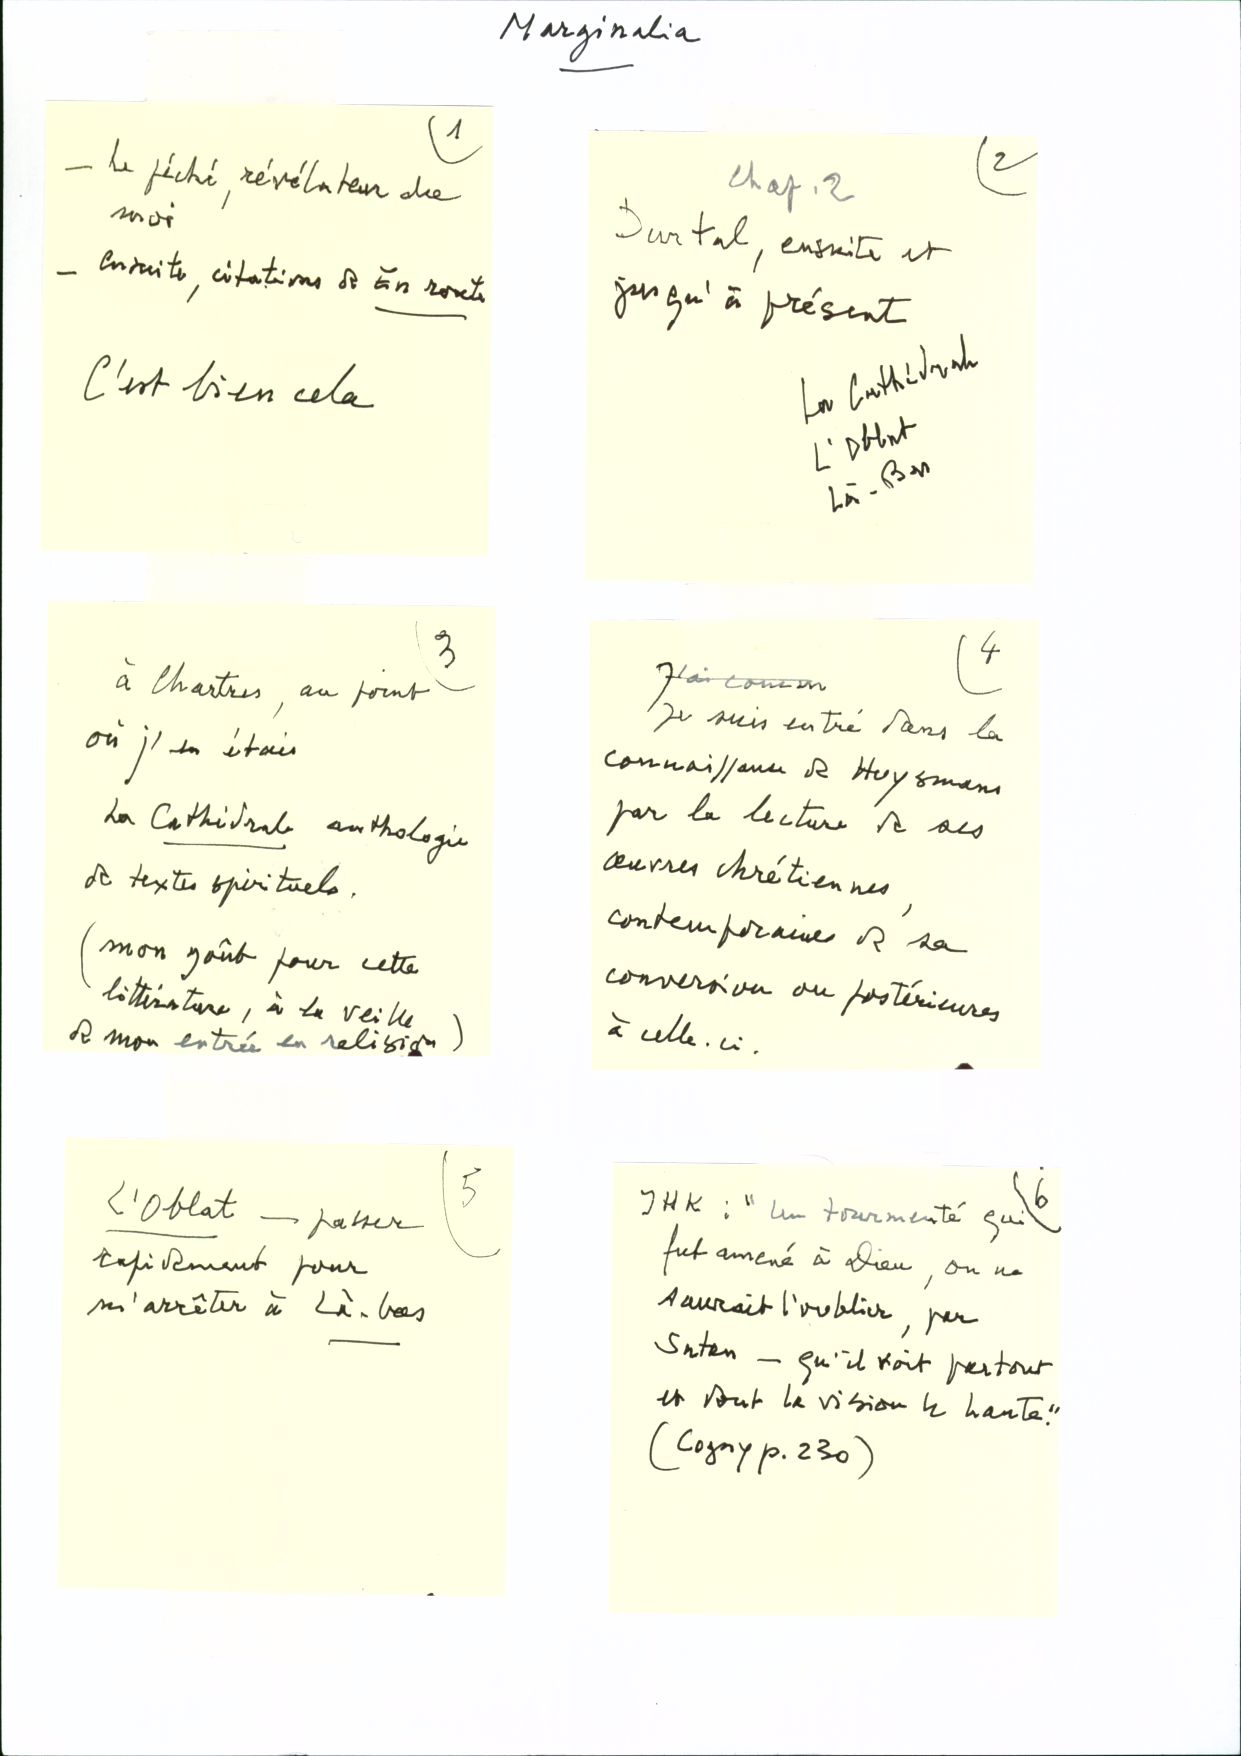 Marginalia
1
– Le péché, révélateur de
moi
– ensuite, citations de En route
C'est bien cela
2
Chap. 2
Durtal, ensuite et
jusqu'à présent
La Cathédrale
L'Oblat
Là-Bas
3
à Chartres, au point
où j'en étais
La Cathédrale anthologie
de textes spirituels.
(mon goût pour cette
littérature, à la veille
de mon entrée en religion)
4
J'ai connu
Je suis entré dans la
connaissance de Huysmans
par la lecture de ses
œuvres chrétiennes,
contemporaines de sa
conversion ou postérieures
à celle-ci.
5
L'Oblat – passer
rapidement pour
m'arrêter à Là-bas
6
JHK : "Un tourmenté qui
fut amené à Dieu, on ne
saurait l'oublier, par
Satan – qu'il voit partout
et dont la vision le hante."
(Cogny p. 230)